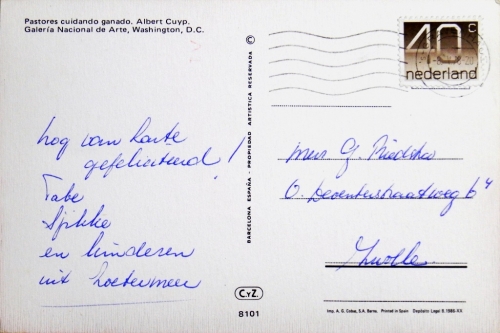 Pastores cuidando ganado. Albert Cuyp.
Galería Nacional de Arte, Washington, D.C.
nog van harte
gefeliciteerd!
Tabe
Sjikke
en kinderen
uit Zoetermeer
BARCELONA ESPAÑA - PROPIEDAD ARTISTICA RESERVADA ©
C.yZ.
8101
40c
nederland
Mevr G.
O. Deventerstraatweg 64
Zwolle
Imp. A. G. Cobas, S.A. Barna. Printed in Spain Depósito Legal B. 1988-XX